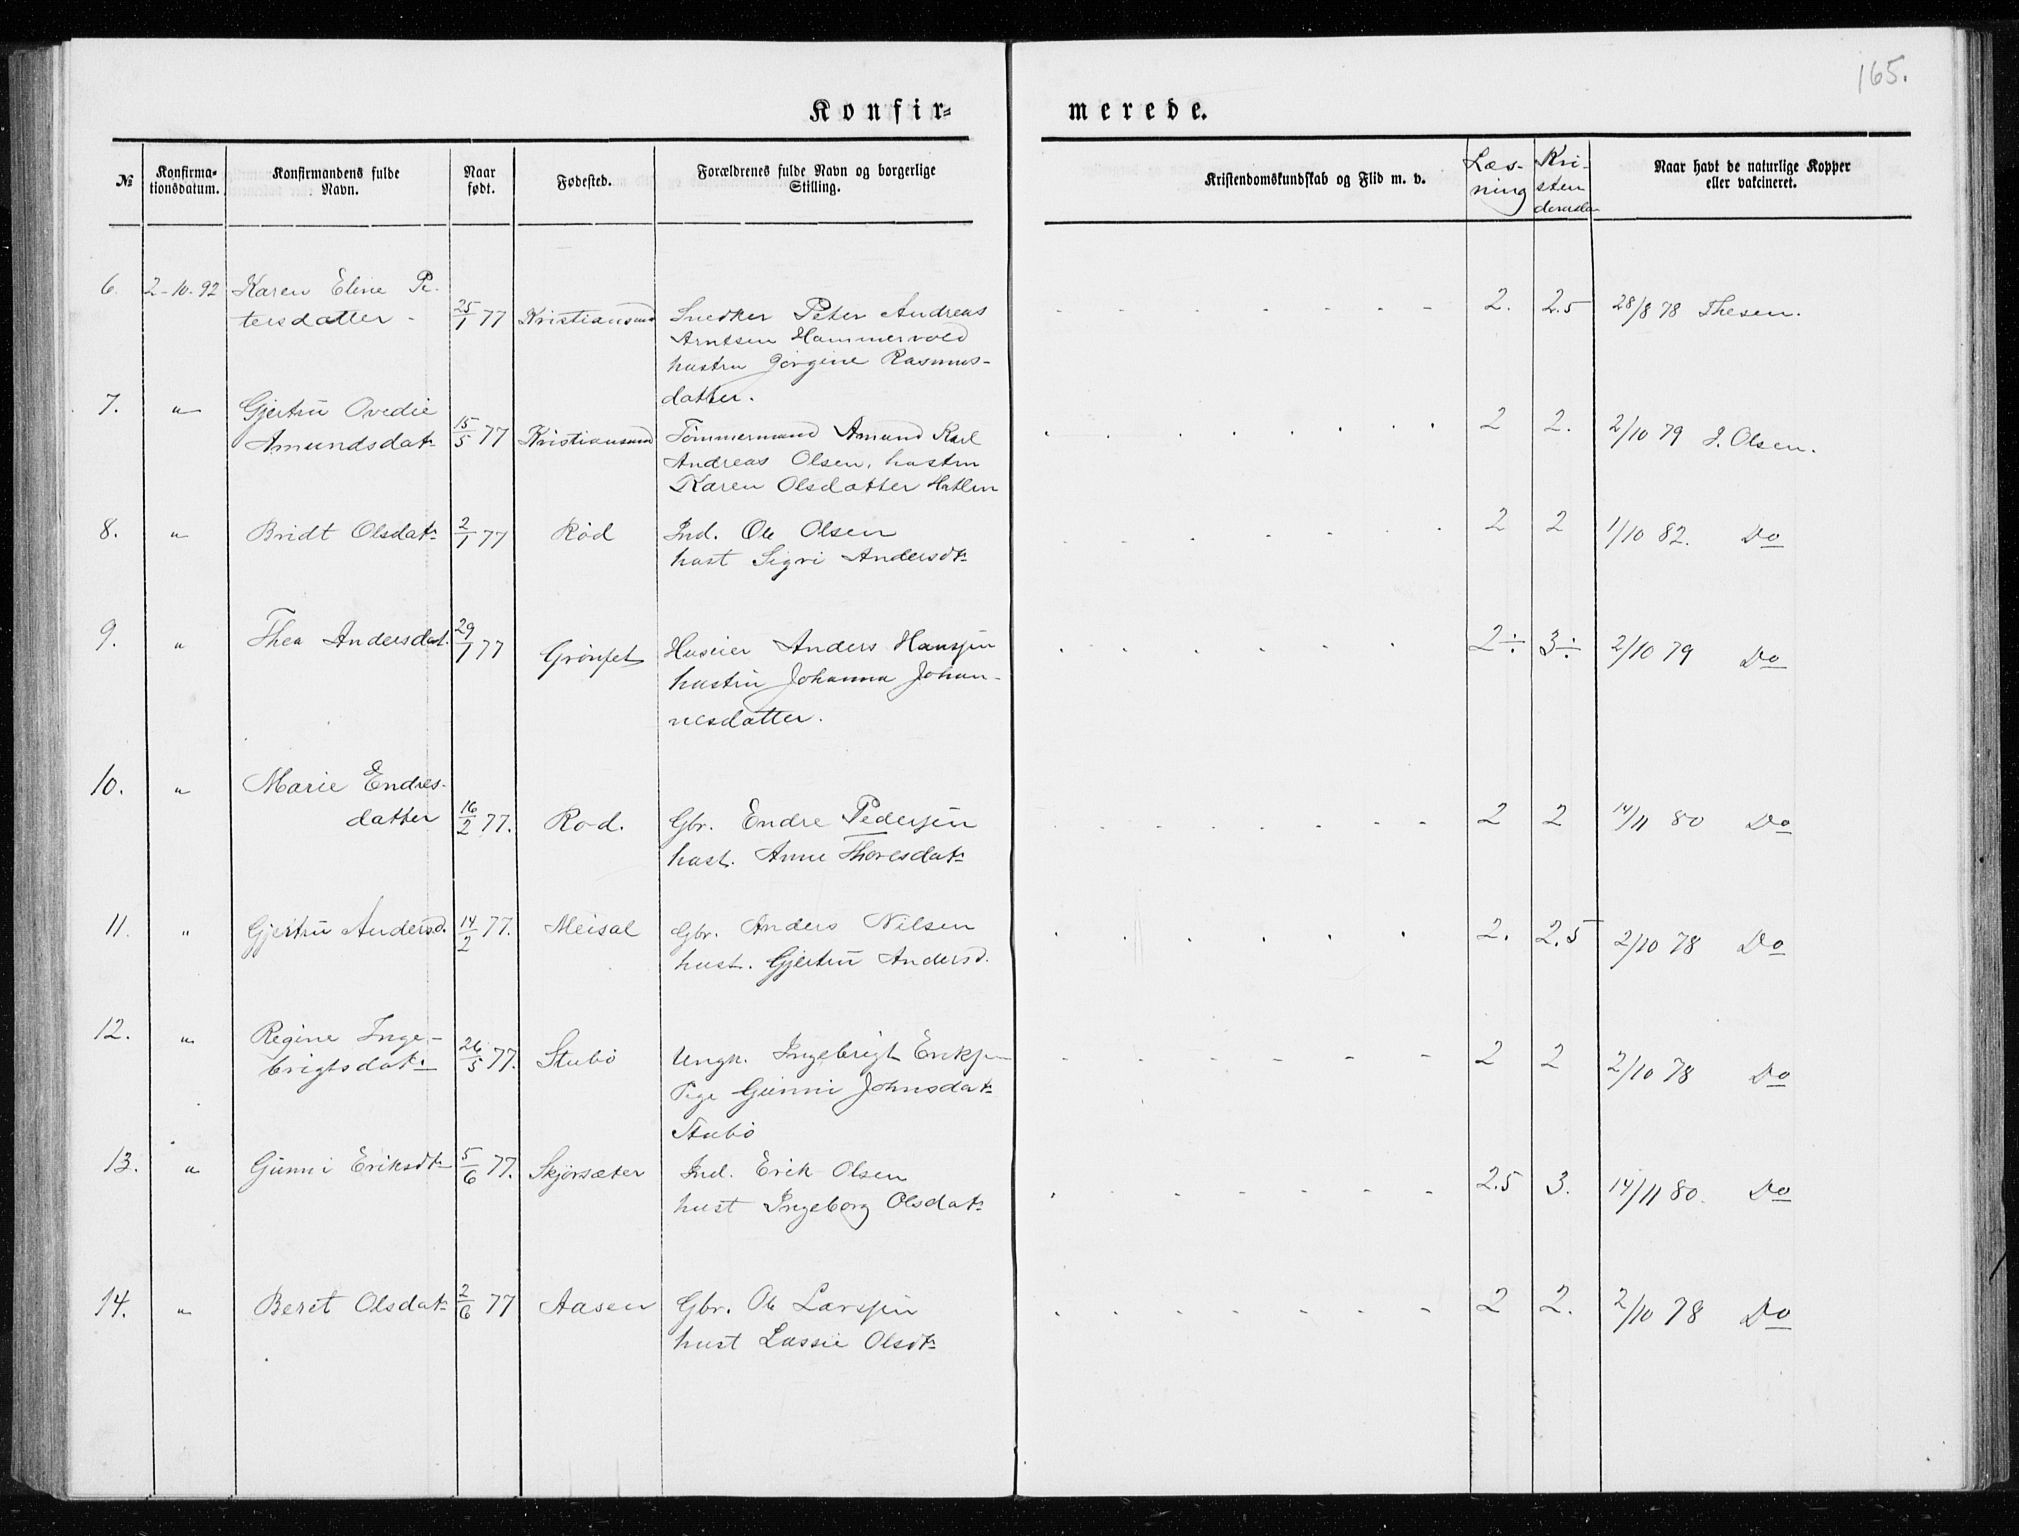 165.
Konfir-
merede.
№
Konfirma-
tionsdatum.
Konfirmandens fulde
Navn.
Naar
født.
Fødested.
Forældrenes fulde Navn og borgerlige
Stilling.
Kristendomskundskab og Flid m. v.
Læs-
ning
Kri-
sten
Naar havt de naturlige Kopper
eller vakcineret.
6. 2-10.92 Karen Eline Pe-
tersdatter - 25/1 77 Kristiansund Snedker Peter Andreas 2. 2.5 28/8 78 Thesen.
Arntsen Hammervold
hustru Jørgine Rasmus-
datter.
7. " Gjertrū Ovedie
Amundsdatr 15/5 77 Kristiansund Tømmermand Amund Karl 2 2. 2/10 79 J. Olsen.
Andreas Olsen, hustru
Karen Olsdatter Hatlen
8. " Bridt Olsdatr 2/1 77 Rød Ind. Ole Olsen 2 2 1/10 82. Do
hust Sigri Andersdtr
9. " Thea Andersdat. 29/1 77 Grønset Huseier Anders Hansen 2÷ 3÷ 2/10 79 Do
hustru Johanna Johan-
nesdatter.
10. " Marie Endres-
datter 16/2 77. Rød. Gbr. Endre Pedersen 2 2 14/11 80 Do
hust. Anne Thoresdatr
11. " Gjertrū Andersd. 14/2 77. Meisal Gbr. Anders Nilsen 2. 2.5 2/10 78 Do
hust. Gjertrū Andersd.
12. " Regine Inge-
brigtsdatr 26/5 77. Stubø Ungk. Ingebrigt Eriksen 2 2 2/10 78 Do
Pige Gūnni Johnsdatr
Stubø
13. " Gūnni Eriksdtr 5/6 77. Skjørsæter Ind. Erik Olsen 2.5 3. 14/11 80. Do
hust Ingeborg Olsdatr
14. " Beret Olsdatr 2/6 77 Aasen Gbr. Ole Larsen 2 2. 2/10 78 Do
hust Lassie Olsdtr